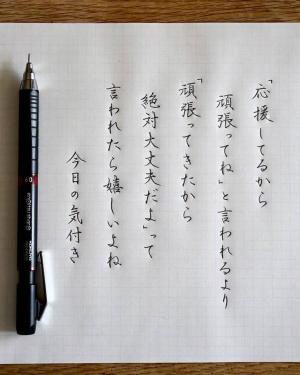 「応援してるから
頑張ってね」と言われるより
「頑張ってきたから
絶対大丈夫だよ」って
言われたら嬉しいよね
今日の気付き